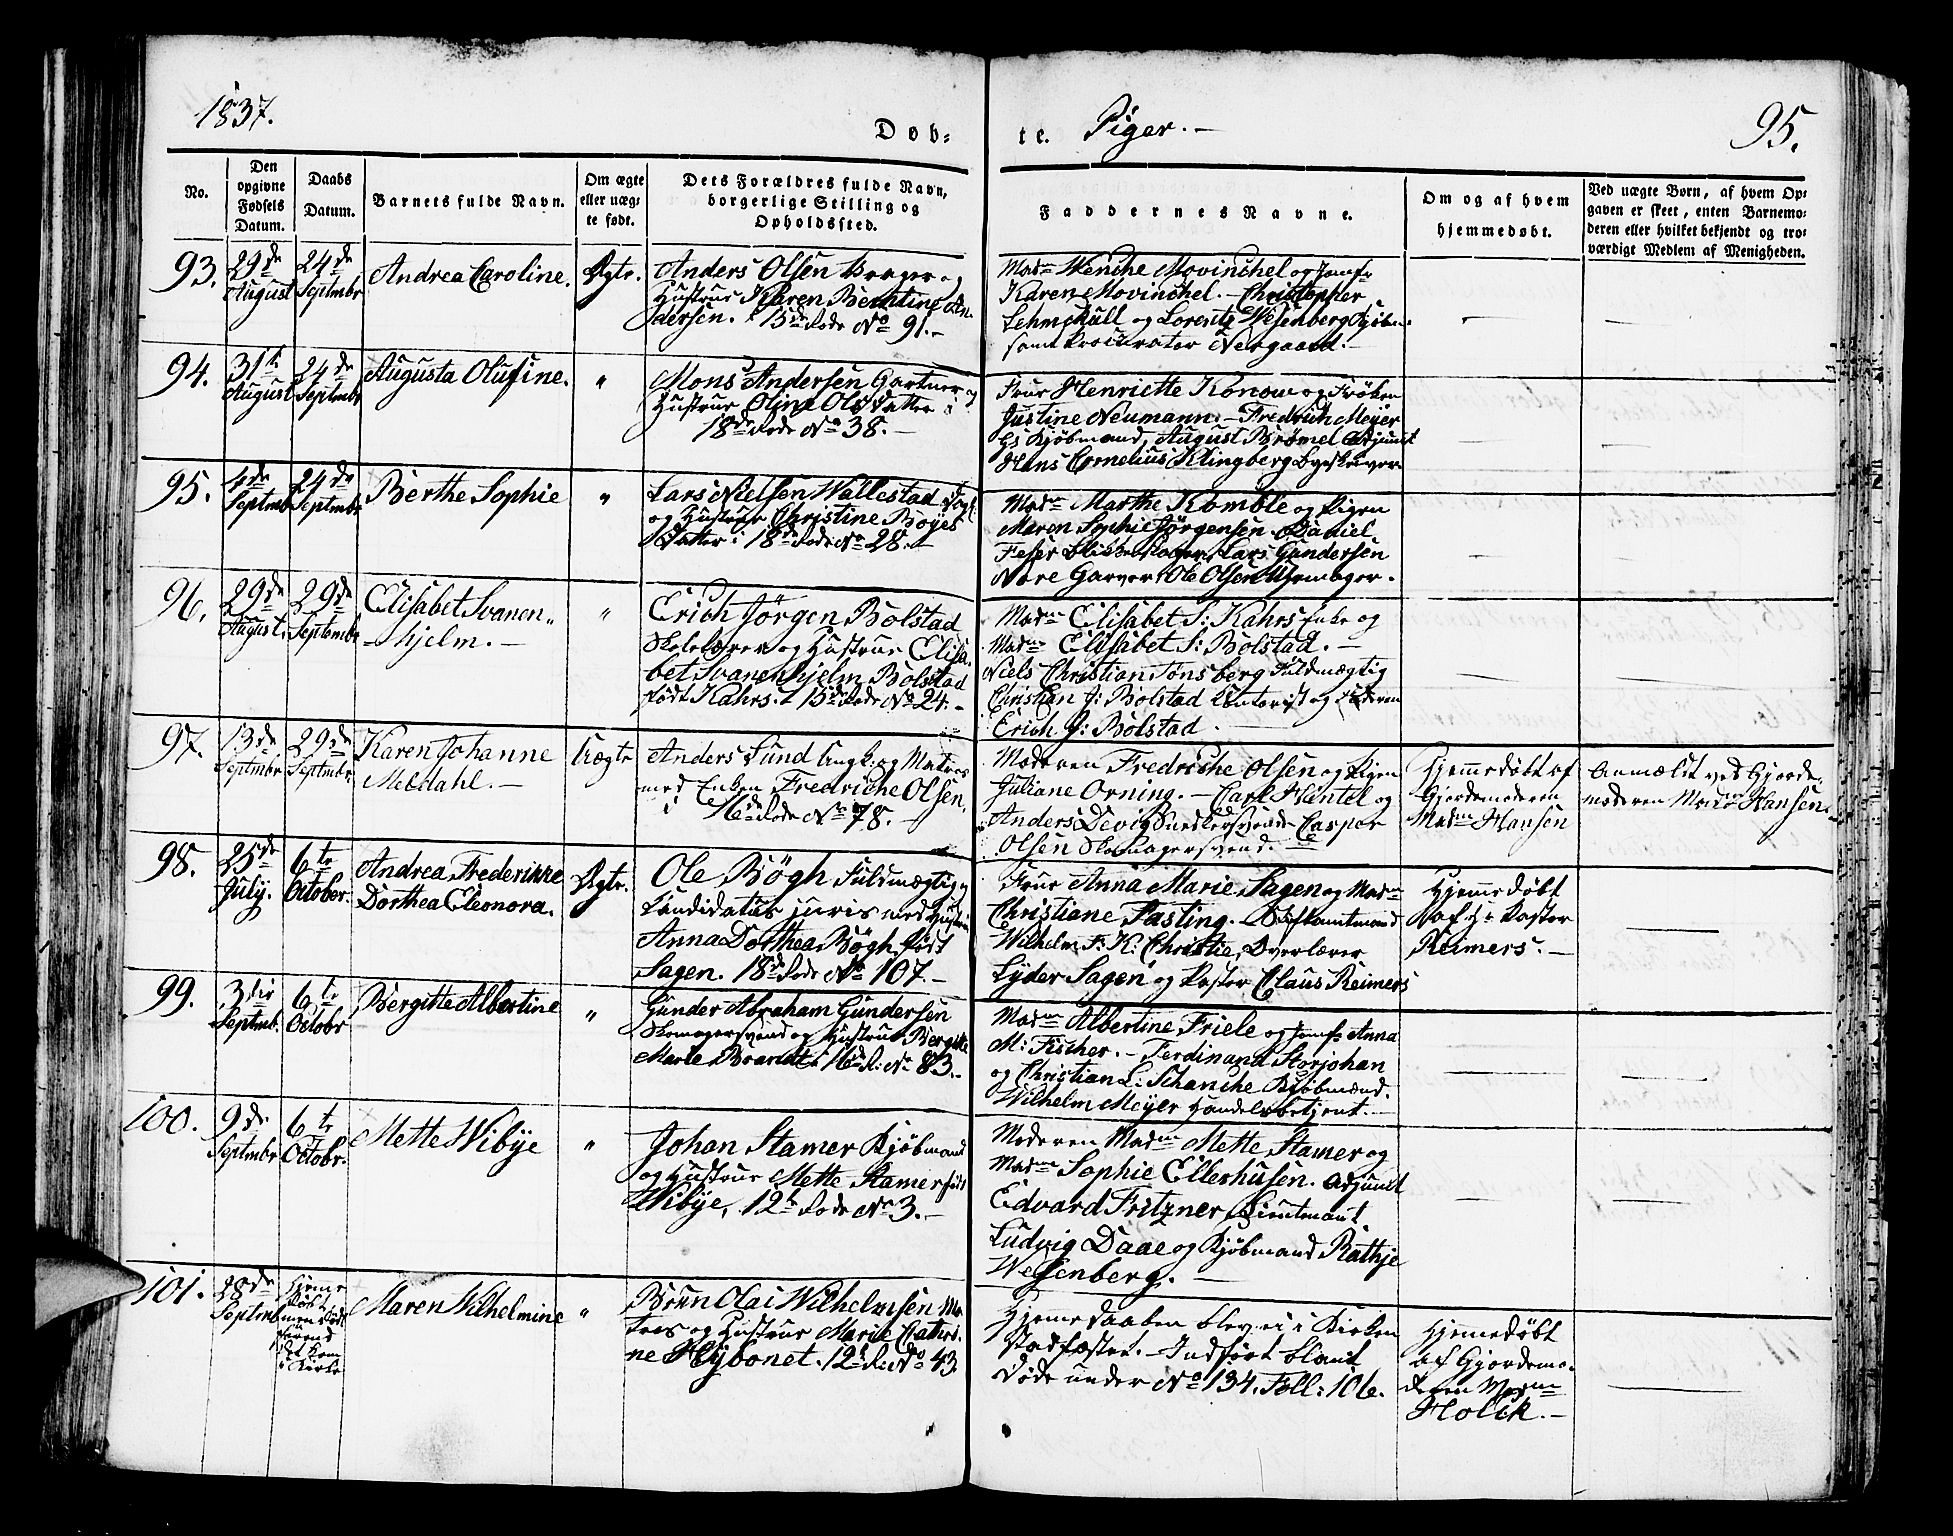 1837.
Døb-
te. Piger.-
95.
No.
Den
opgivne
Fødsels
Datum.
Daabs
Datum.
Barnets fulde Navn.
Om ægte
eller uæg-
te født.
Dets Forældres fulde Navn,
borgerlige Stilling og
Opholdssted.
Faddernes Navne.
Om og af hvem
hjemmedøbt.
Ved uægte Børn, af hvem Op-
gaven er skeet, enten Barnemo-
deren eller hvilket bekjendt og tro-
værdigt Medlem af Menigheden.
93.
29de
August
24de
Septmbr
Andrea Caroline.
Ægte.
Anders Olsen Brager og
Hustrue Karen Berntine An-
dersen. i 15de Rode No 91.-
Madm Wenche Movinchel og Jomfr
Karen Movinchel. - Christopher
Lehmkull og Lorentz Wesenberg Kjøbm:
samt Procurator Nergaard.-
94.
31te
August
24de
Septmbr
Augusta Olufine.
"
Mons Andersen Gartner og
Hustrue Oline Olsdatter i
18de Rode No 38.-
Frue Henriette Konow og Frøken
Justine Neumann. - Fredrich Meyer
Kjøbmand, August Brømel Adjunct
Hans Cornelius Klingberg Byeskriver
95.
4de
Septmb
24de
Septmbr
Berthe Sophie
"
Lars Nielsen Wallestad
og Hustrue Christine Boyes
Datter i 18de Rode No 28.-
Madm Marthe Komble og Pigen
Maren Sophie Jörgensen. Daniel
Feser Blikkenslager, Lars Gundersen
Nore Garver, Ole Olsen Uhrmager.
96.
29de
August.
29de
Septembr
Elisabet Svanen-
hjelm.-
"
Erich Jörgen Bolstad
Skolelærer og Hustrue Elisa-
bet Svanenhjelm Bolstad
født Kahrs. i 15de Rode No 24.-
Madm Elisabet S: Kahrs Enke og
Madm Elisabet S: Bolstad.-
Niels Christian Tönsberg Fuldmægtig
Christian J: Bolstad Contorist og Faderen
Erich J: Bolstad.
97.
13de
Septmbr
29de
Septmbr
Karen Johanne
Meldahl.-
Uægte
Anders Lund Ungk: og Matros
med Enken Fredriche Olsen,
i 16de Rode No 78.-
Moderen Fredriche Olsen og Pigen
Juliane Orning. - Carl Hentel og
Anders Devig Snedkersvende Casper
Olsen Skomagersvend.
Hjemmedøbt af
Gjordemoderen
Madm Hansen
Anmældt ved Gjorde-
moderen Madm Hansen.
98.
25de
July.
6te
October.
Andrea Frederikke
Dorthea Eleonora.
Ægte.
Ole Bögh Fuldmægtig,
Candidatus juris med Hustrue
Anna Dorthea Bögh født
Sagen. 18de Rode No 107.-
Frue Anna Marie Sagen og Madm
Christiane Sasting. - Stiftamtmand
Wilhelm F: K: Christie, Overlærer
Lyder Sagen og Pastor Claus Reimers
Hjemmedøbt
af Hr Pastor
Reimers.-
99.
3die
Septmb.
6te
Octobr
Bergitte Albertine
"
Gunder Abraham Gundersen
Skomagersvend og Hustrue Bergitte
Marie Brandt i 16de R: No 83.-
Madm Albertine Friele og Jomfr Anna
M: Fischer. - Ferdinand Storjohan
og Christian L: Schanche Kjøbmænd.
Wilhelm Meyer Handelsbetjent.-
100.
9de
Septmbr
6te
Octobr.
Mette Wibÿe
"
Johan Stamer Kjøbmand
og Hustrue Mette Stamer født
Wibÿe, 12te Rode No 3.-
Moderen Madm Mette Stamer og
Madm Sophie Ellerhusen. Adjunct
Edvard Fritzner, Lieutenant
Ludvig Daae og Kjøbmand Rathje
Wesenberg.-
101.
28de
Septmb
Hjemme
døbt
men død
førend
det kom
i Kirke
Maren Wilhelmine
"
Brun Olai Wilhelmsen Ma-
tros og Hustrue Marie Cathri-
ne Heybonet. 12te R: No 43.
Hjemmedaaben blev ei i Kirken
stadfæstet. - Indført blant
døde under No 134. Foll: 106.
Hjemmedøbt
af Gjordemo-
deren Madm
Holck.-